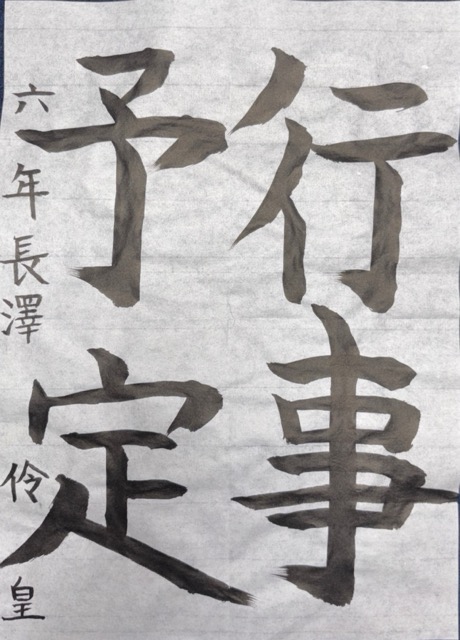 行事
予定
六年長澤伶皇